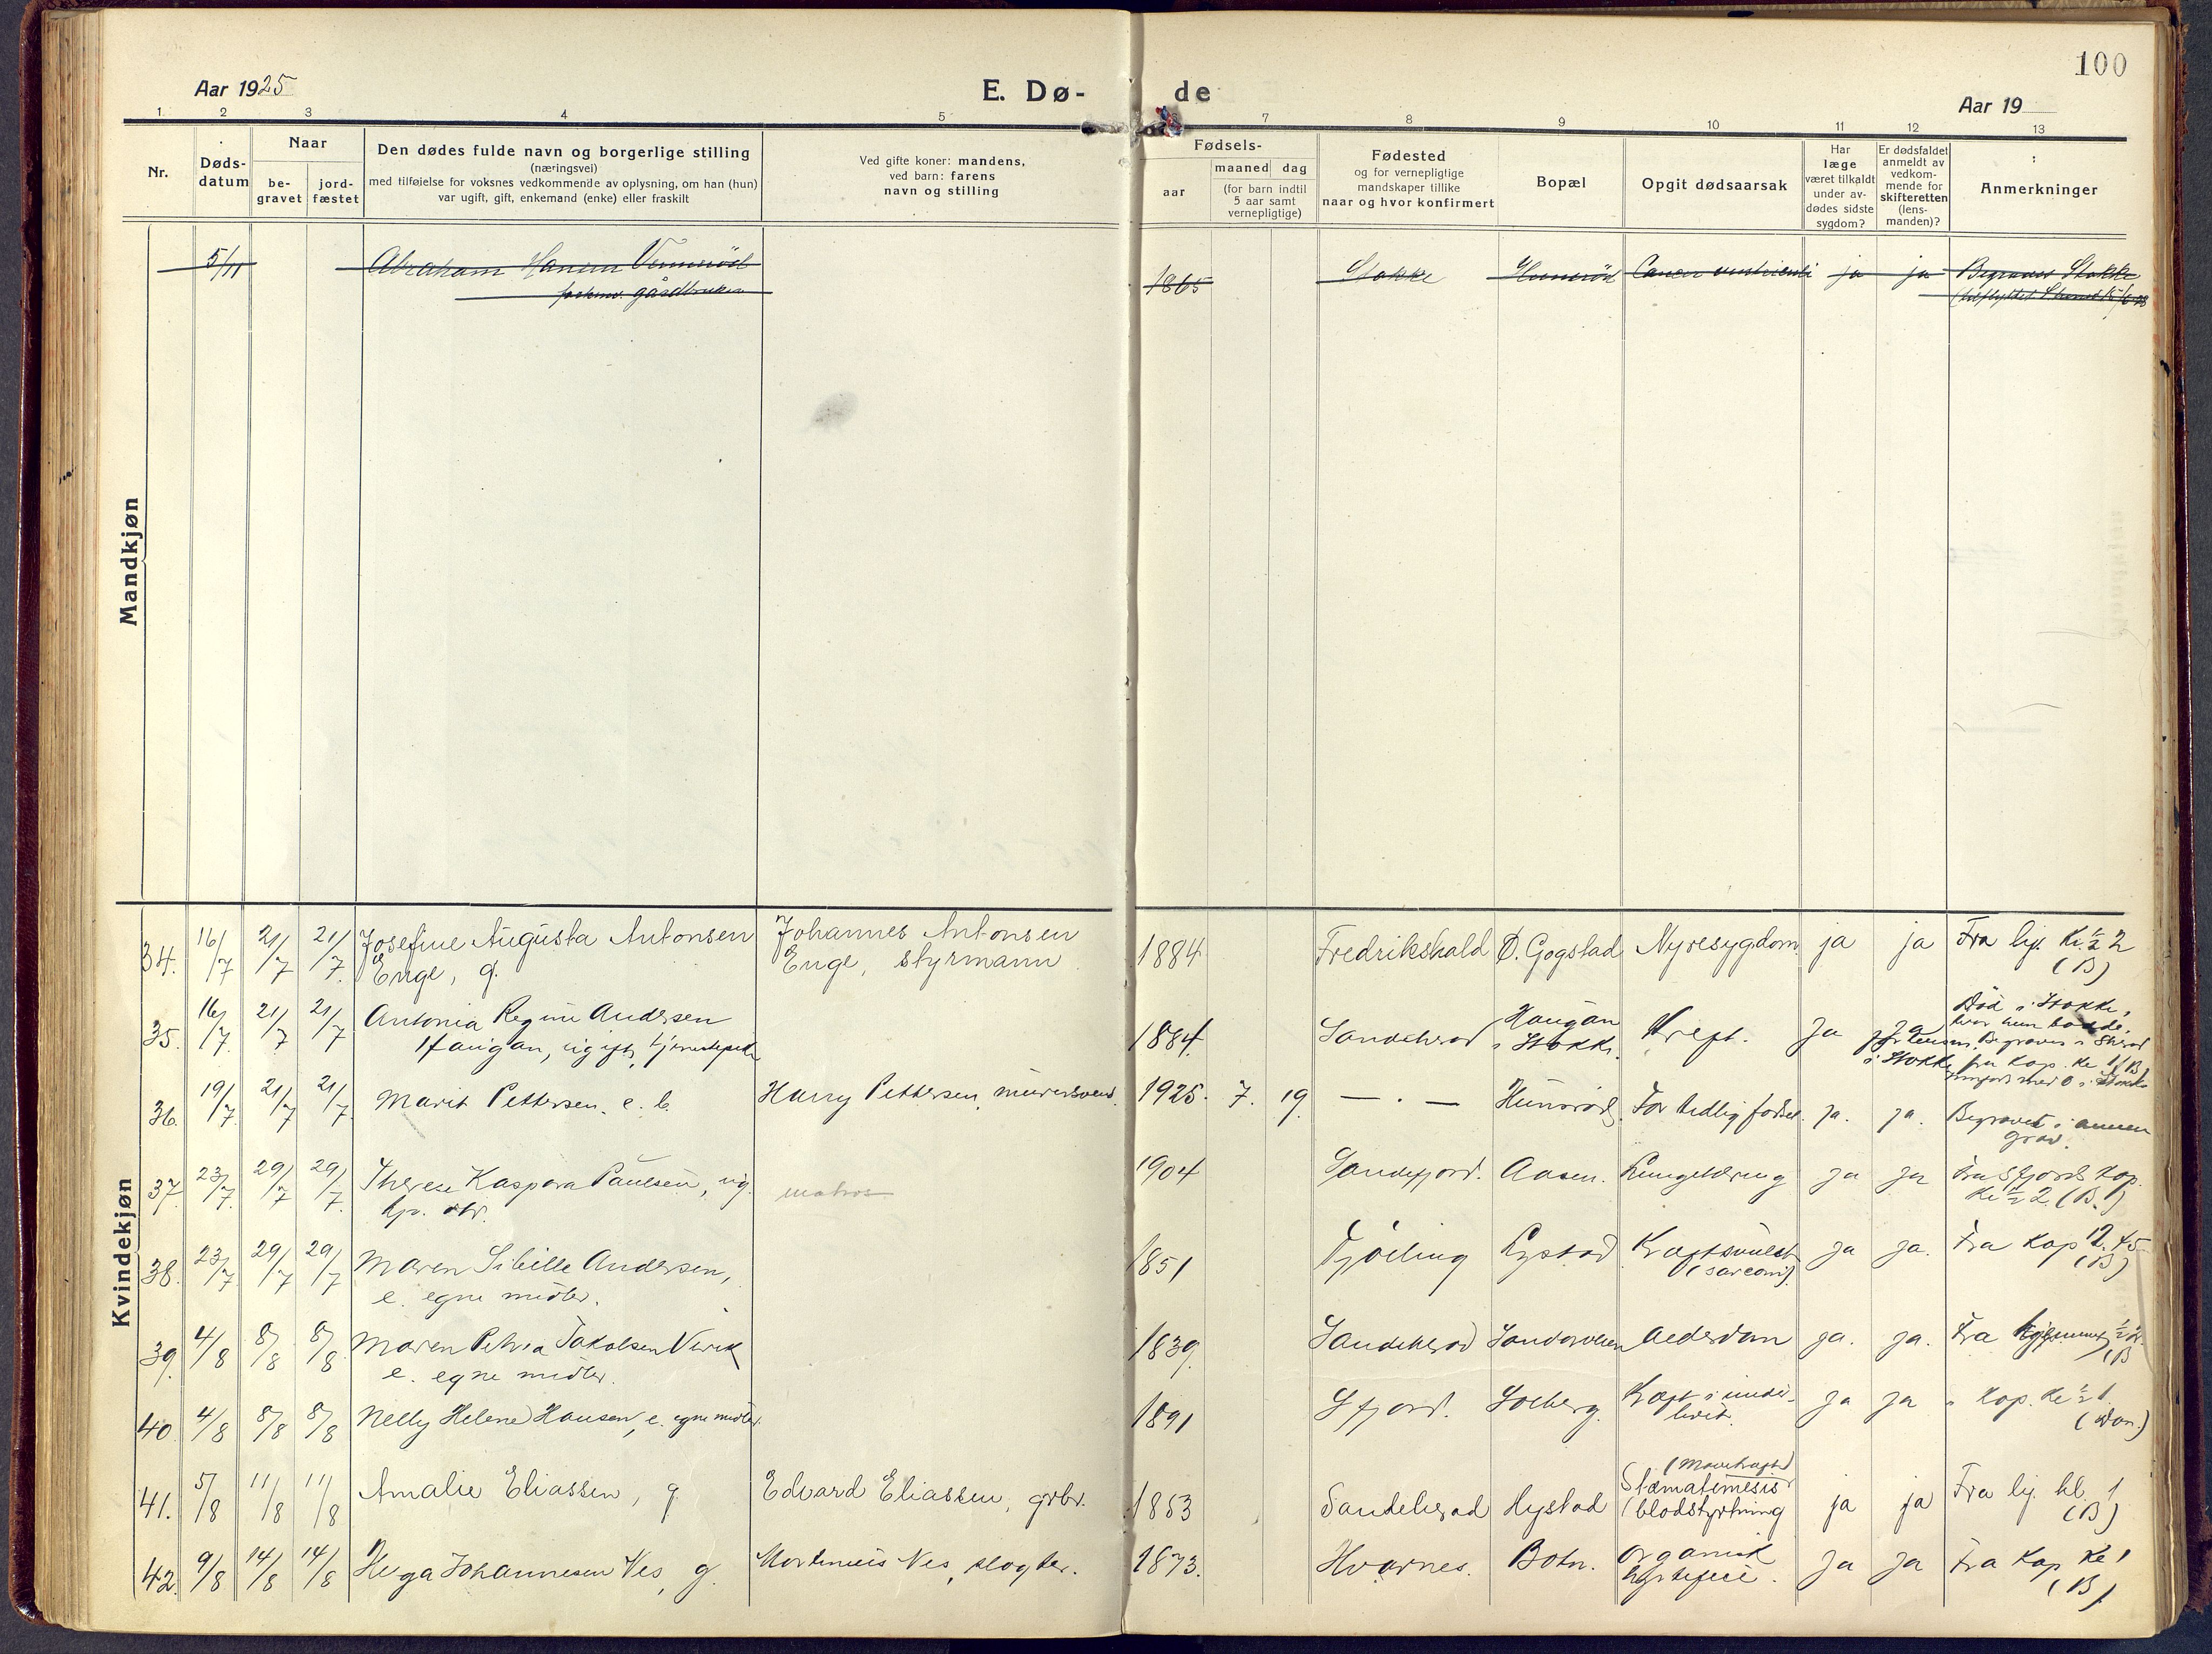 100
Aar 1925
E. Dø-
de
Aar 19
1 2 3 4 5 7 8 9 10 11 12 13
Nr.
Døds-
datum
Naar
be-
gravet
jord-
fæstet
Den dødes fulde navn og borgerlige stilling
(næringsvei)
med tilføielse for voksnes vedkommende av oplysning, om han (hun)
var ugift, gift, enkemand (enke) eller fraskilt
Ved gifte koner: mandens,
ved barn: farens
navn og stilling
Fødsels-
aar
maaned dag
(for barn indtil
5 aar samt
vernepligtige)
Fødested
og for vernepligtige
mandskaper tillike
naar og hvor konfirmert
Bopæl
Opgit dødsaarsak
Har
læge
været tilkaldt
under av-
dødes sidste
sygdom?
Er dødsfaldet
anmeldt av
vedkom-
mende for
skifteretten
(lens-
manden)?
Anmerkninger
Mandkjøn
5/11 Abraham Hansen 1865 Stokke Cancer ventriculi ja ja Begraves Stokke
gårdbruker
Kvindekjøn
34. 16/7 21/7 21/7 Josefine Augusta Antonsen Johannes Antonsen 1884 Fredrikshald Ø. Gogstad Nyresygdom ja ja Fra lig. Kl. ½ 2
Enge, g. Enge, styrmann (B)
35. 16/7 21/7 21/7 Antonia Regine Andersen 1884. Sandeherad Haugan Kreft. Ja ja Død i Stokke,
Haugan, ugift, tjenestepike i Stokke. hvor hun bodde.
i Stokke fra Kap. Kl. 1 (B)
36. 19/7 21/7 21/7 Marit Pettersen. e. b. Harry Pettersen, murersvend. 1925. 7. 19. — . — Hunsrød For tidlig fødsel. ja. ja. Begravet i annen
grav.
37. 23/7 29/7 29/7 Therese Kaspara Paulsen, ug. matros 1904 Sandefjord. Aasen. Lungetæring ja ja Fra Sfjords Kap.
Kl ½ 2. (B.)
38. 23/7 29/7 29/7 Maren Sibille Andersen, 1851 Tjølling Lystad Kræftsvulst ja ja. Fra Kap 12.45
e. egne midler. (sarcom) (B)
39. 4/8 8/8 8/8 Maren Petrea Jakobsen Virik 1839. Sandeherad Alderdom ja. ja. Fra
e. egne midler. (B
40. 4/8 8/8 8/8 Nelly Helene Hansen, e. egne midler. 1891 Sfjord. Solberg. Kræft i under- ja ja " Kap. Kl ½ 1.
livet.
41. 5/8 11/8 11/8 Amalie Eliassen, g. Edvard Eliassen, grbr. 1853 Sandeherad Hystad Hæmatemesis ja ja Fra lig. kl. 1
(blodstyrtning (B)
42. 9/8 14/8 14/8 Helga Johannesen Nes, g. Martinius Nes, slagter. 1873. Hvarnes. Botn. Organisk ja ja Fra Kap Kl 1
hjertefeil. (B)